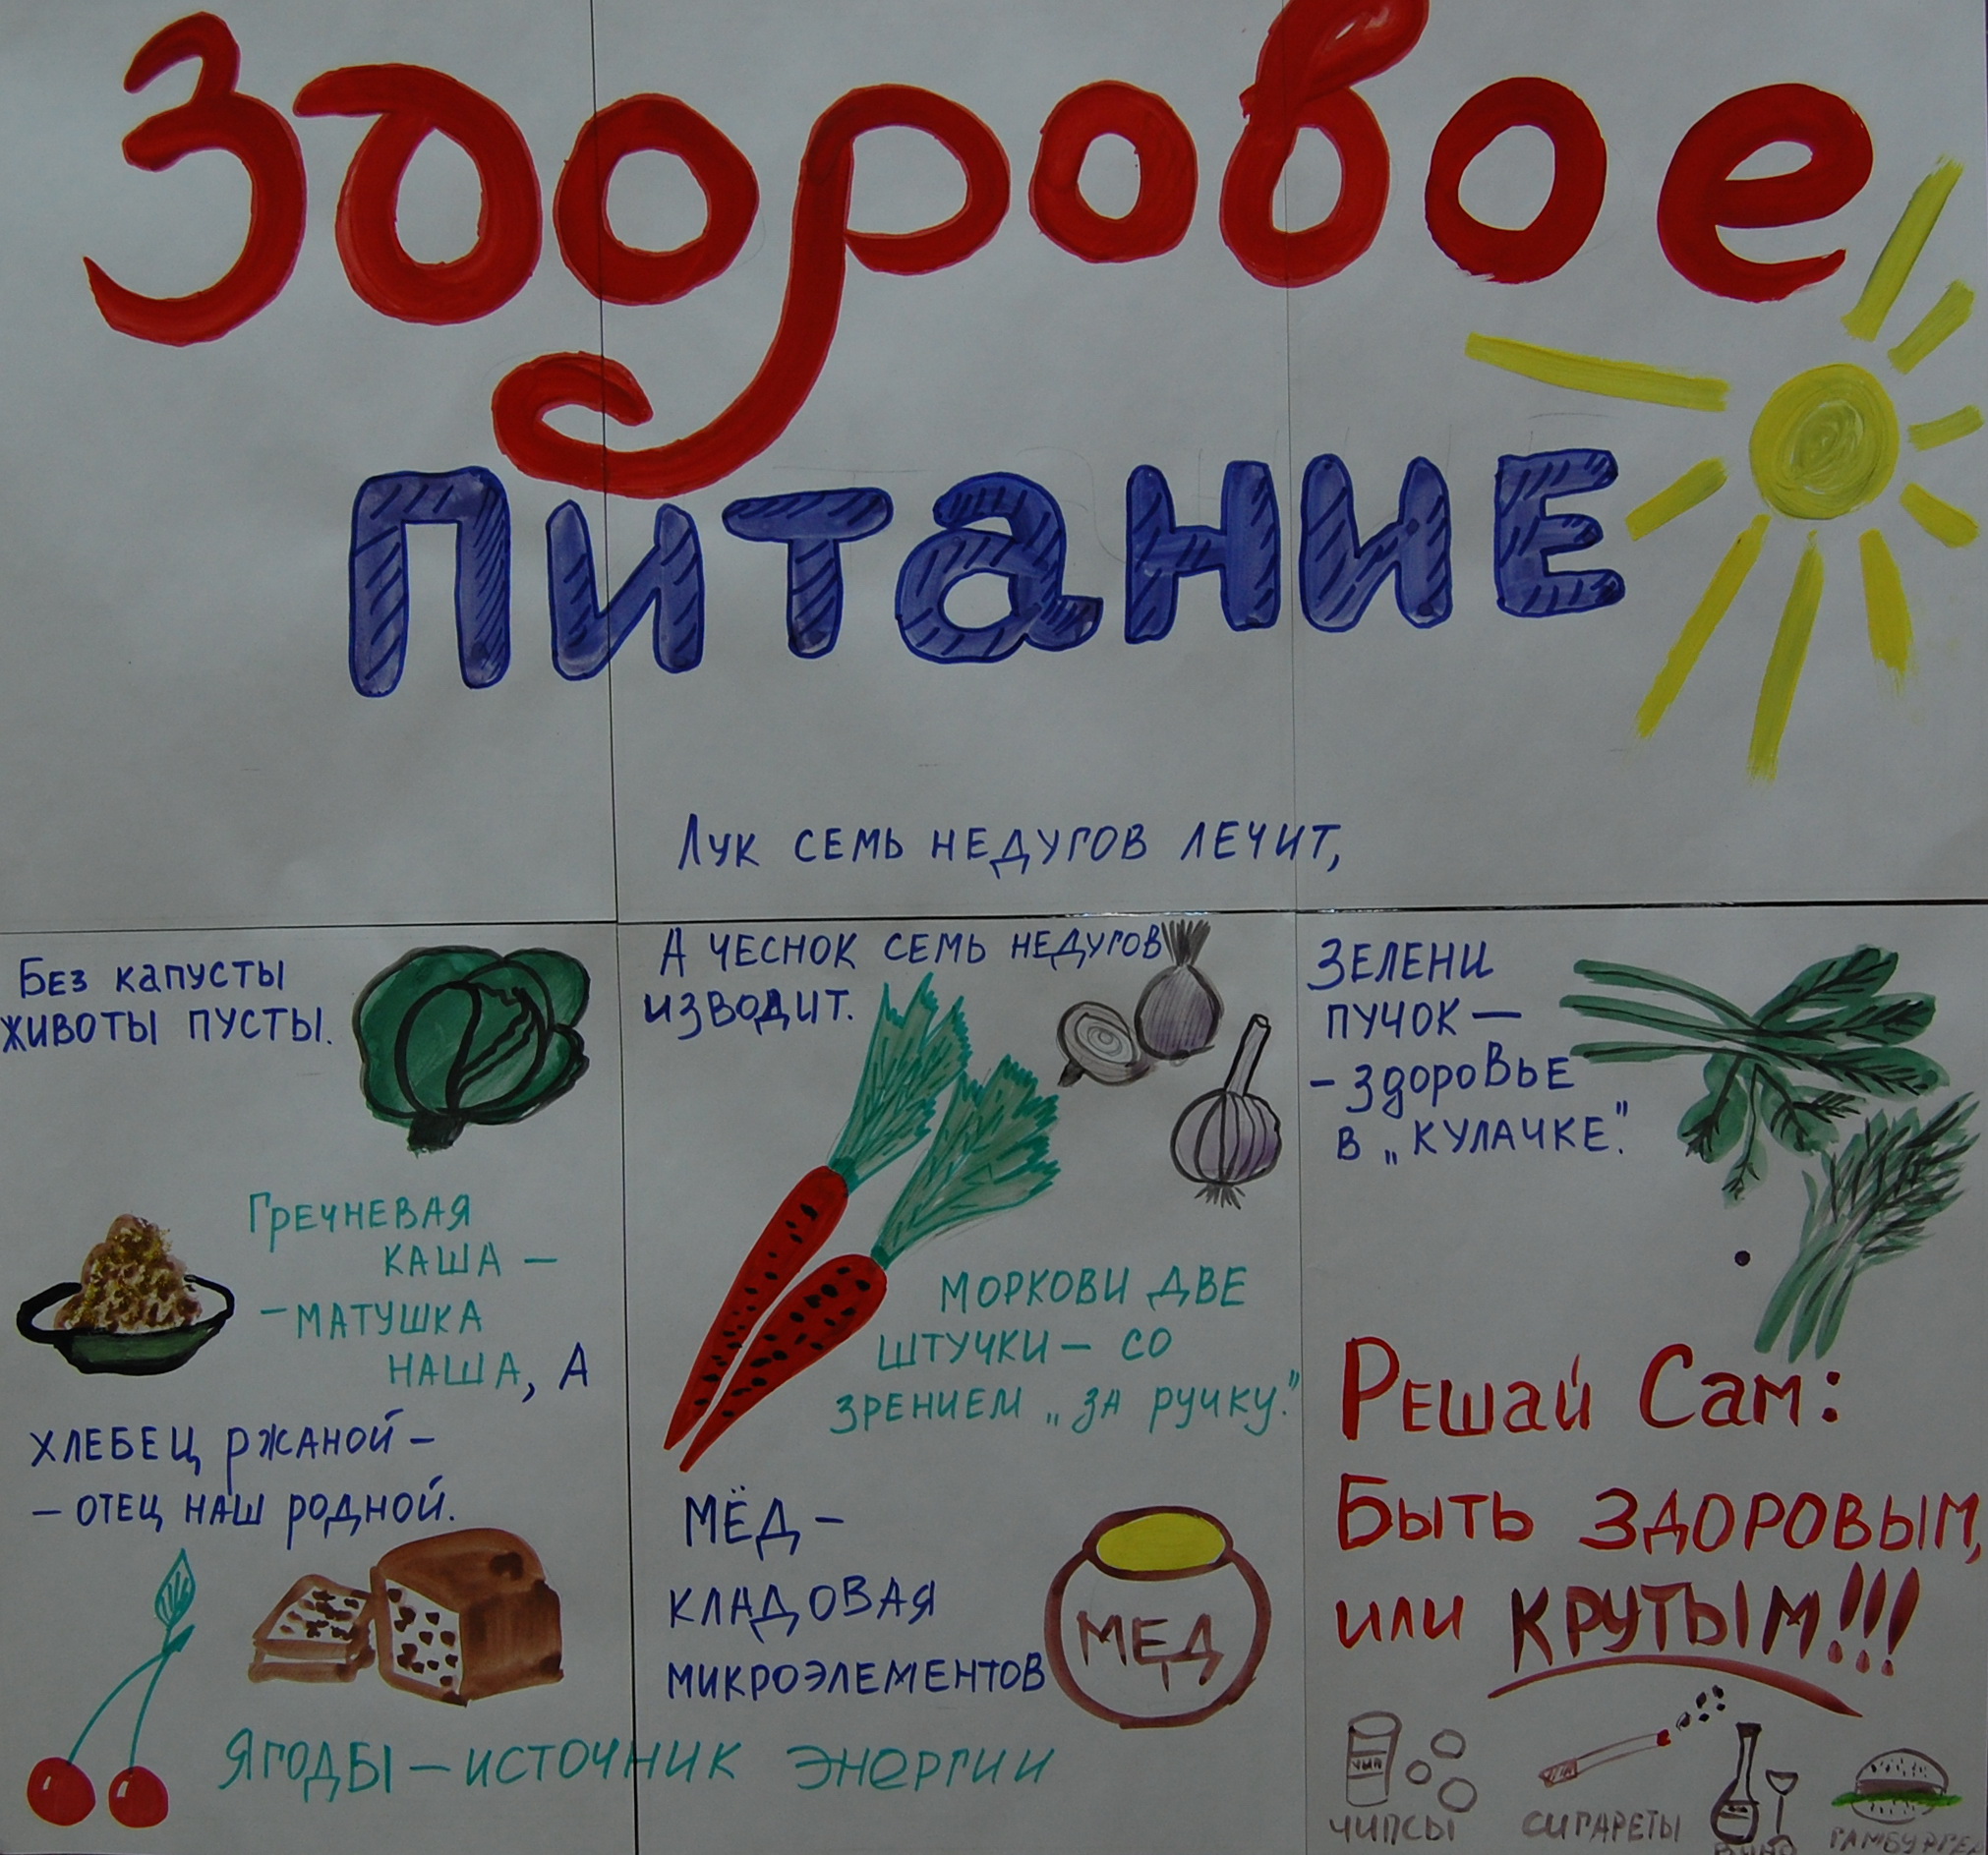 Здоровое
питание
Лук семь недугов лечит,
А чеснок семь недугов
изводит.
Без капусты
животы пусты.
Гречневая
каша —
— матушка
наша, а
хлебец ржаной —
— отец наш родной.
Моркови две
штучки — со
зрением „за ручку."
Мёд —
кладовая
микроэлементов
МЕД
Ягоды — источник энергии
Зелени
пучок —
— здоровье
в „кулачке."
Решай Сам:
Быть здоровым,
или крутым!!!
чип
чипсы
сигареты
вино
гамбургер